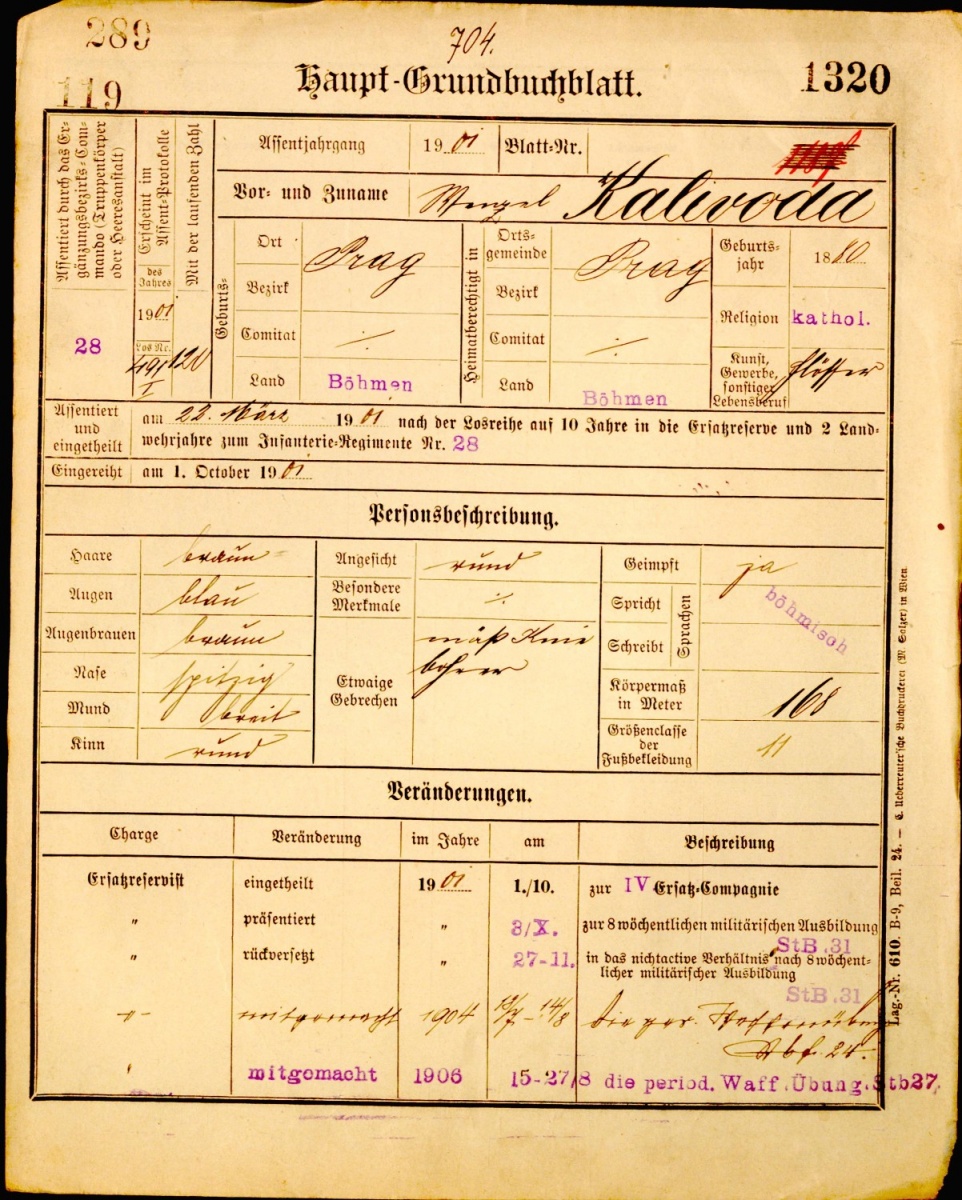 289
704.
119
Haupt-Grundbuchblatt.
1320
Assentiert durch das Er-
gänzungsbezirks-Com-
mando (Truppenkörper
oder Heeresanstalt)
28
Erscheint im
Assent-Protokolle
des
Jahres
1901
Los Nr.
Mit der laufenden Zahl
120
Assentjahrgang 1901 Blatt-Nr.
Vor- und Zuname Wenzel Kalivoda
Geburts-
Ort Prag
Bezirk
Comitat ∕.
Land Böhmen
Heimatberechtigt in
Orts-
gemeinde Prag
Bezirk
Comitat ∕.
Land Böhmen
Geburts-
jahr 1880
Religion kathol.
Kunst,
Gewerbe,
sonstiger
Lebensberuf
flösser
Assentiert
und
eingetheilt
am 22. März 1901 nach der Losreihe auf 10 Jahre in die Ersatzreserve und 2 Land-
wehrjahre zum Infanterie-Regimente Nr. 28
Eingereiht am 1. October 1901
Personsbeschreibung.
Haare braun
Augen blau
Augenbrauen braun
Nase spitzig
Mund breit
Kinn rund
Angesicht rund
Besondere
Merkmale ∕.
Etwaige
Gebrechen
mäß Knie
bohrer
Geimpft ja
Spricht
Schreibt
Sprachen
böhmisch
Körpermaß
in Meter 168
Größenclasse
der
Fußbekleidung
11
Veränderungen.
Charge Veränderung im Jahre am Beschreibung
Ersatzreservist eingetheilt 1901 1./10. zur IV Ersatz-Compagnie
„ präsentiert „ 3/X. zur 8 wöchentlichen militärischen Ausbildung
StB.31
„ rückversetzt „ 27-11. in das nichtactive Verhältnis nach 8 wöchent-
licher militärischer Ausbildung
StB.31
-„- mitgemacht 1904 14/8 die per. Waffenübung
Abf. 24.
mitgemacht 1906 15-27/8 die period. Waff.Übung.Stb27.
Lag.-Nr. 610. B-9, Beil. 24. — C. Ueberreuter'sche Buchdruckerei (M. Salzer) in Wien.